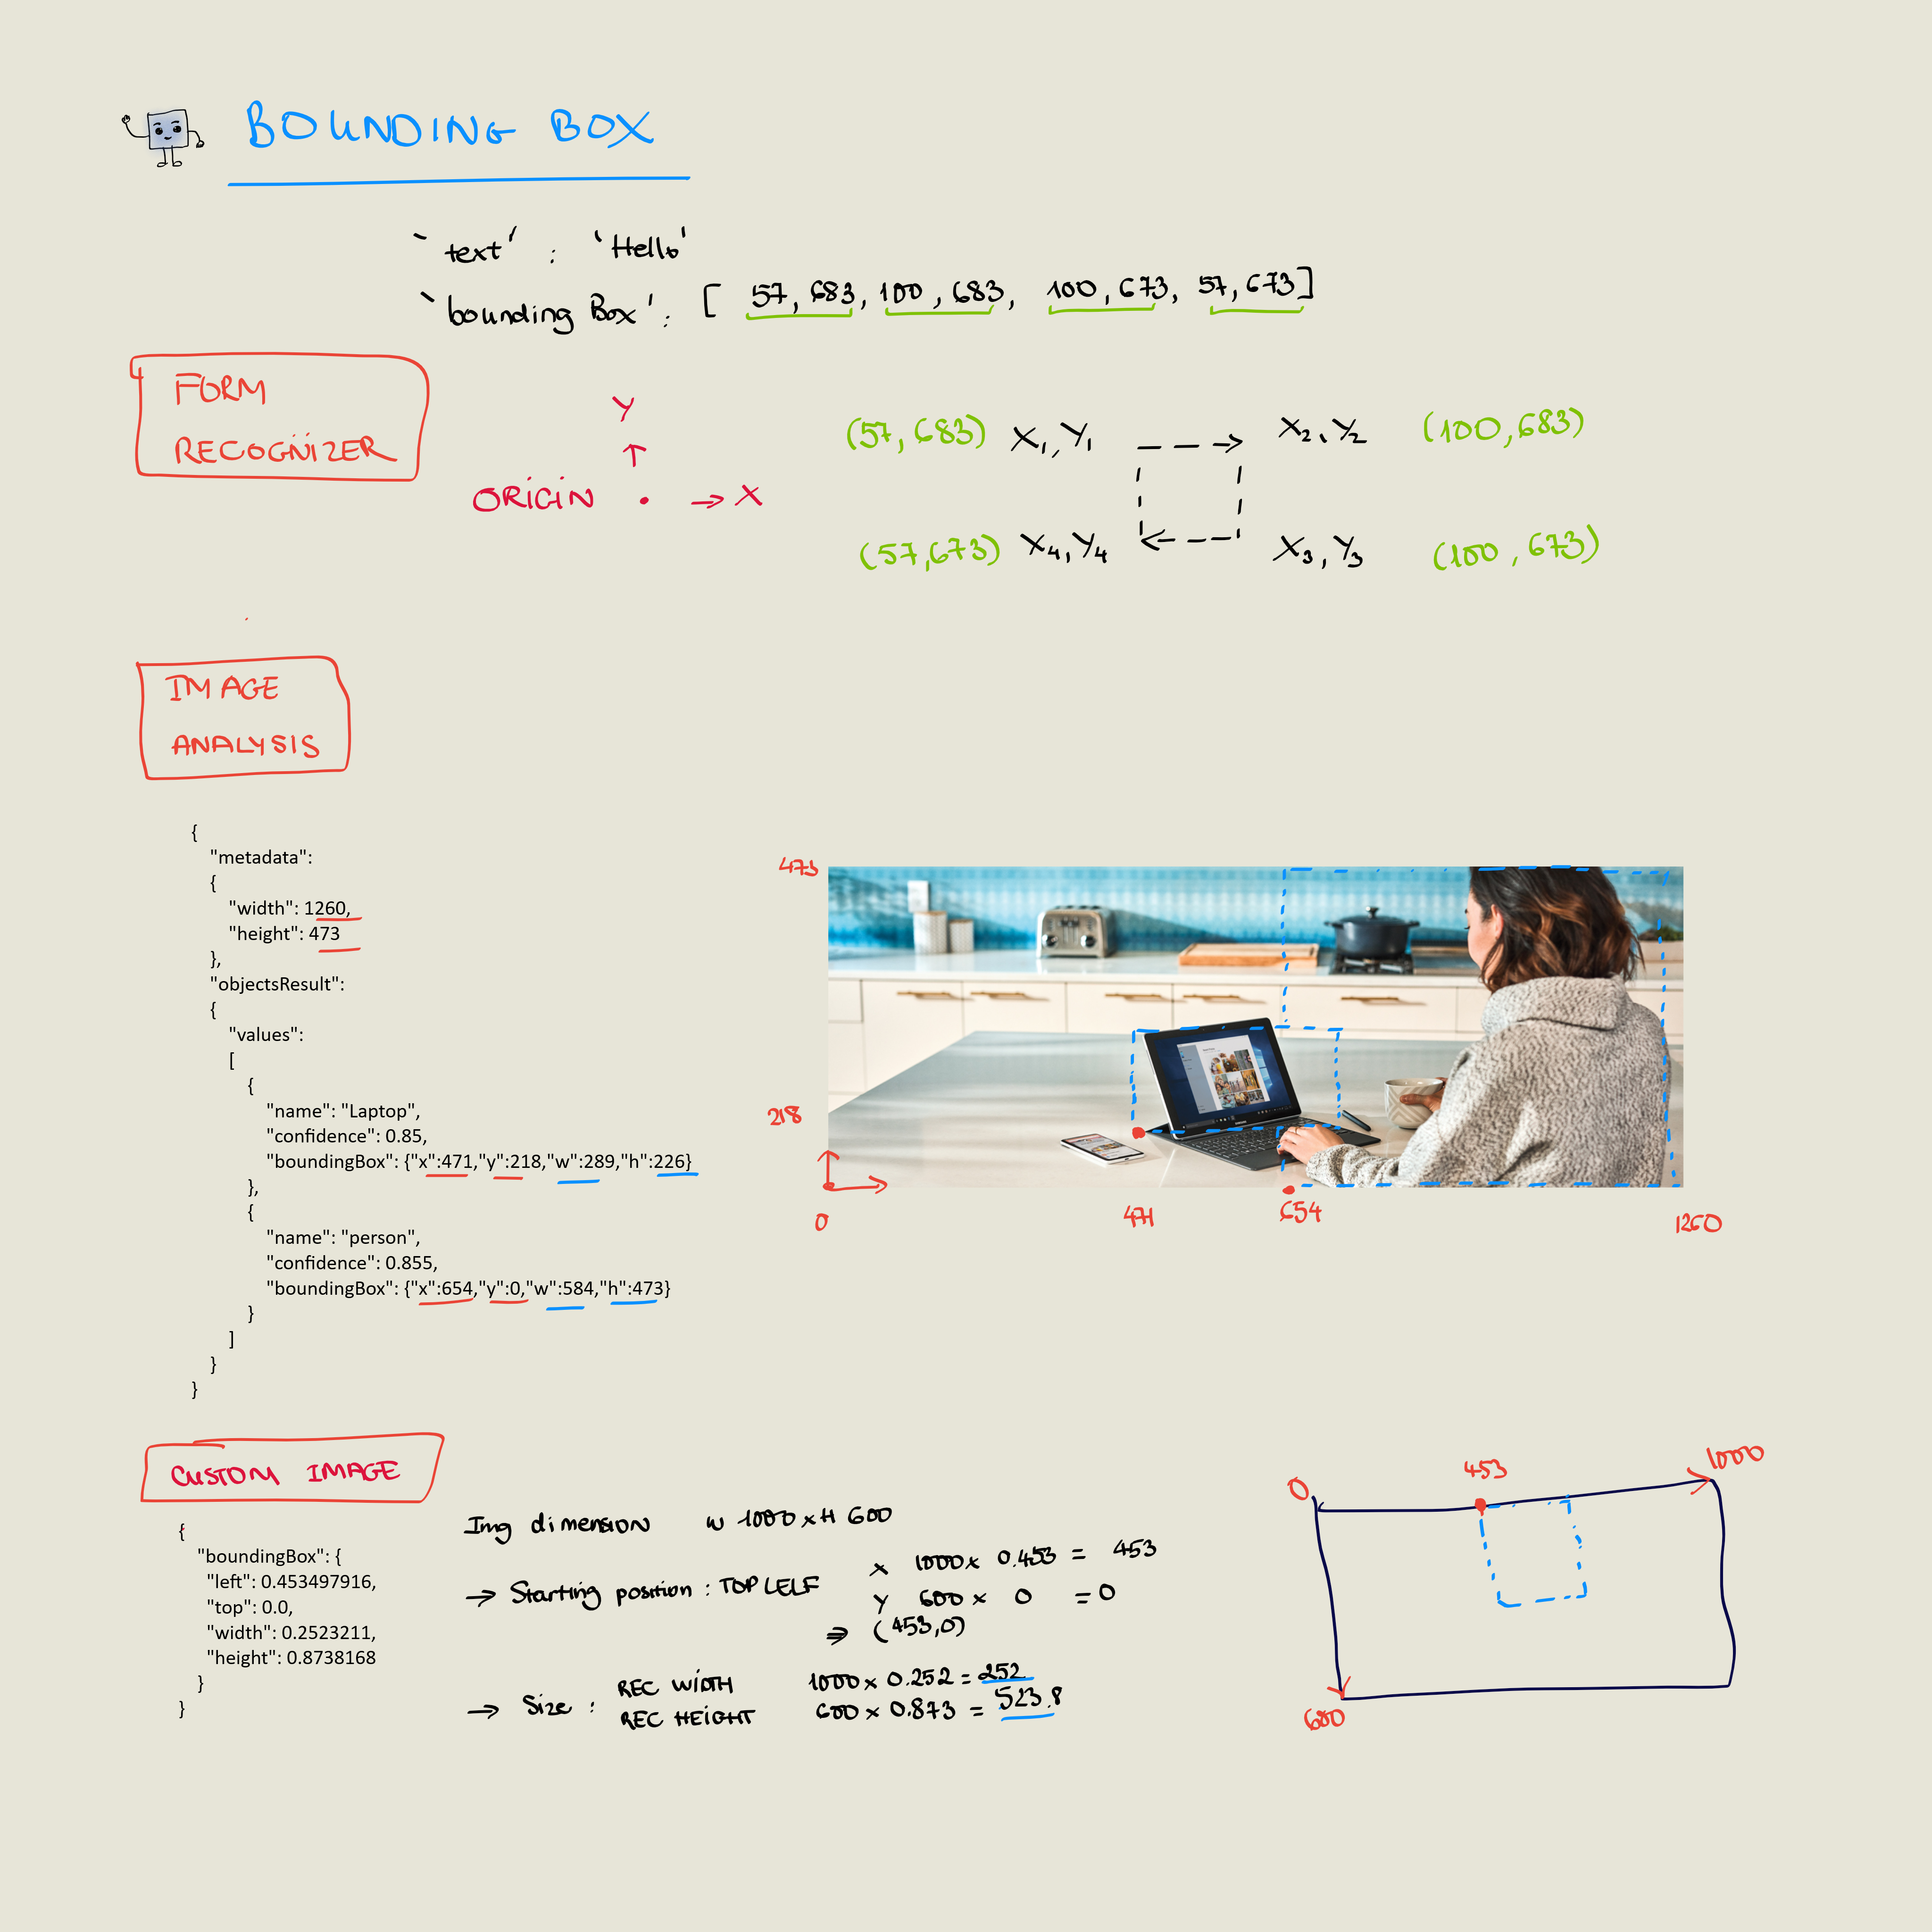 BOUNDING BOX
`text' : 'Hello'
`bounding Box': [ 57, 683, 100, 683, 100, 673, 57, 673]
FORM
RECOGNIZER
Y
↑
ORIGIN . → X
(57, 683) X1, Y1 X2, Y2 (100, 683)
(57, 673) X4, Y4 X3, Y3 (100, 673)
IMAGE
ANALYSIS
{
"metadata":
{
"width": 1260,
"height": 473
},
"objectsResult":
{
"values":
[
{
"name": "Laptop",
"confidence": 0.85,
"boundingBox": {"x":471,"y":218,"w":289,"h":226}
},
{
"name": "person",
"confidence": 0.855,
"boundingBox": {"x":654,"y":0,"w":584,"h":473}
}
]
}
}
473
218
0 471 654 1260
CUSTOM IMAGE
{
"boundingBox": {
"left": 0.453497916,
"top": 0.0,
"width": 0.2523211,
"height": 0.8738168
}
}
Img dimension W 1000 x H 600
→ Starting position : TOP LELF
X 1000 x 0.453 = 453
Y 600 x 0 = 0
⇒ (453,0)
→ Size :
REC WIDTH 1000 x 0.252 = 252
REC HEIGHT 600 x 0.873 = 523.8
0 453 1000
600